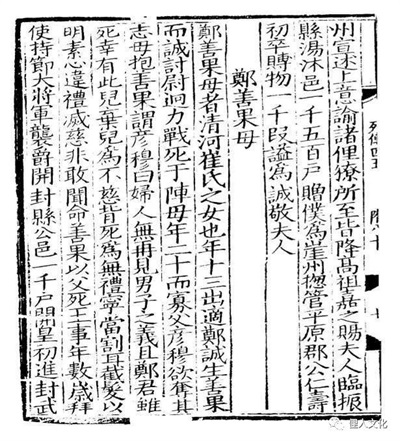 州宣述上意諭諸俚獠所至皆降高祖嘉之賜夫人臨振
縣湯沐邑一千五百戶贈僕為崖州揔管平原郡公仁壽
初卒賻物一千段謚為誠敬夫人
鄭善果母
鄭善果母者清河崔氏之女也年十三出適鄭誠生善果
而誠討尉迥力戰死于陣母年二十而寡父彥穆欲奪其
志母抱善果謂彥穆曰婦人無再見男子之義且鄭君雖
死幸有此兒棄兒為不慈背死為無禮寧當割耳截髮以
明素心違禮滅慈非敢聞命善果以父死王事年數歲拜
使持節大將軍襲爵開封縣公邑一千戶開皇初進封武
俚人文化